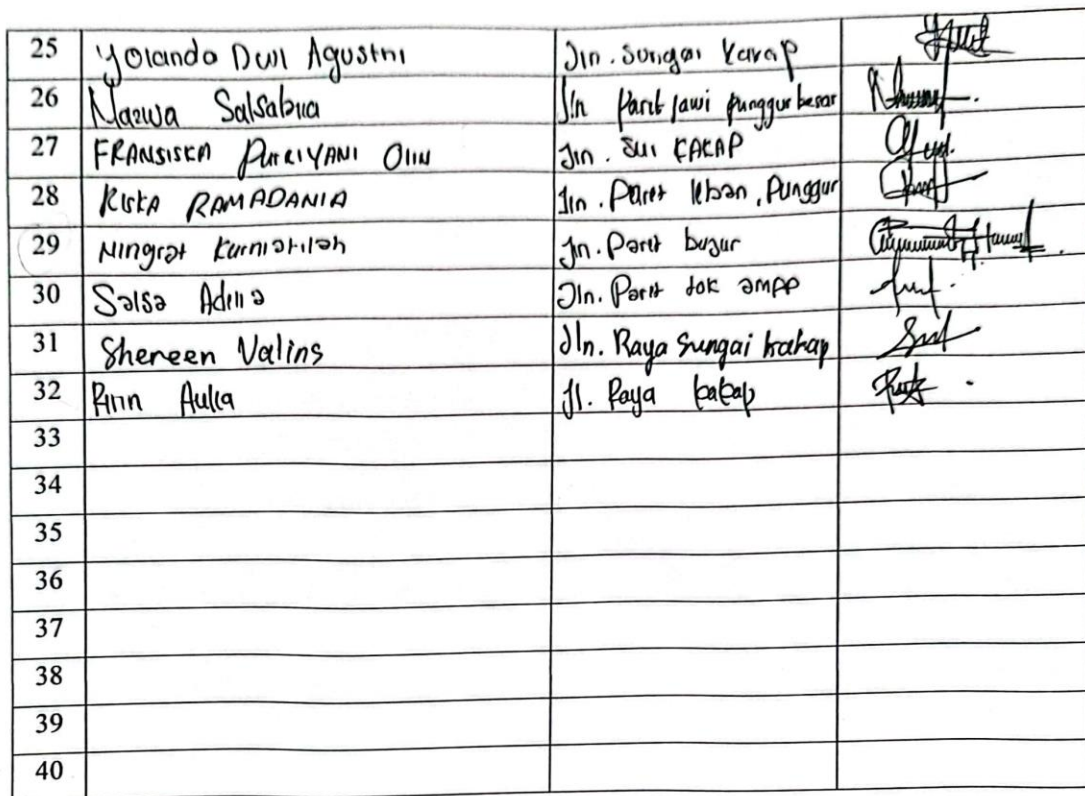 25 Yolanda Dwi Agustni Jln. Sungai Kakap
26 Nazwa Salsabila Jln Parit Jawi Punggur besar
27 FRANSISKA PUTRIYANI Olin Jln. SUI KAKAP
28 Riska RAMADANIA Jln. Paret leban, Punggur
29 Ningrat Kurniatilah Jn. Parit bugur
30 Salsa Adilla Jln. Parit tok
31 Shereen Valins Jln. Raya Sungai kakap
32 Ririn Aulia Jl. Raya kakap
33
34
35
36
37
38
39
40